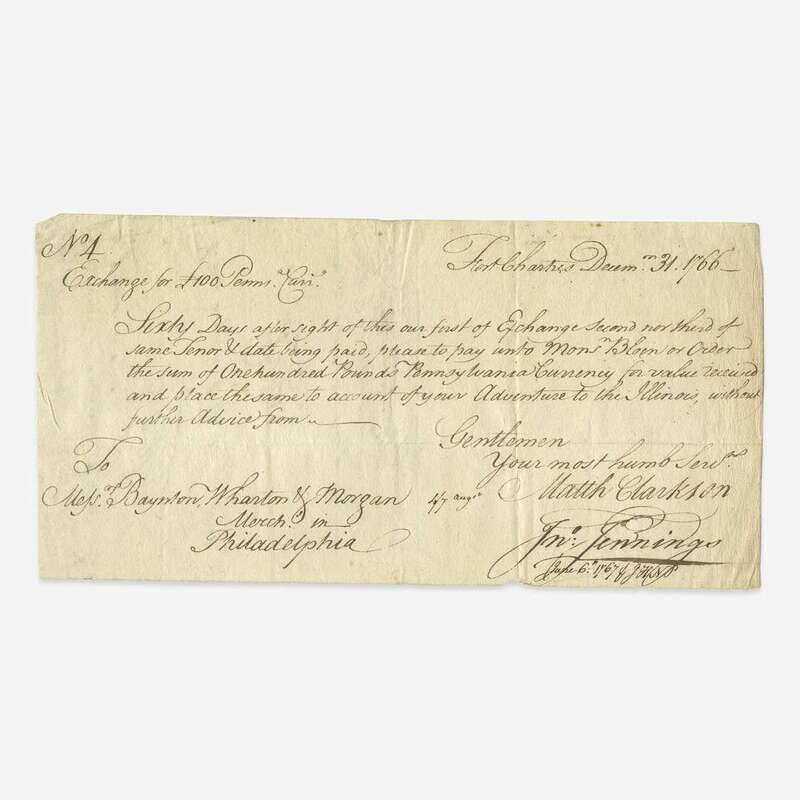 No. 4
Fort Chartres Decem.r 31. 1766
Exchange for £100 Penns.a Curr.y
Sixty Days after sight of this our first of Exchange Second nor third of
same Tenor & date being paid, please to pay unto Mons.r Bloen or Order
the sum of One hundred Pounds Pennsylvania Currency for value received
and place the same to account of your Adventure to the Illinois, without
further Advice from
Gentlemen
Your most humb Serv.ts
To
Mess.rs Baynton, Wharton & Morgan
4/7 Aug.t
Matth Clarkson
Merch.ts in
Philadelphia
Jno. Jennings
June 6. 1767